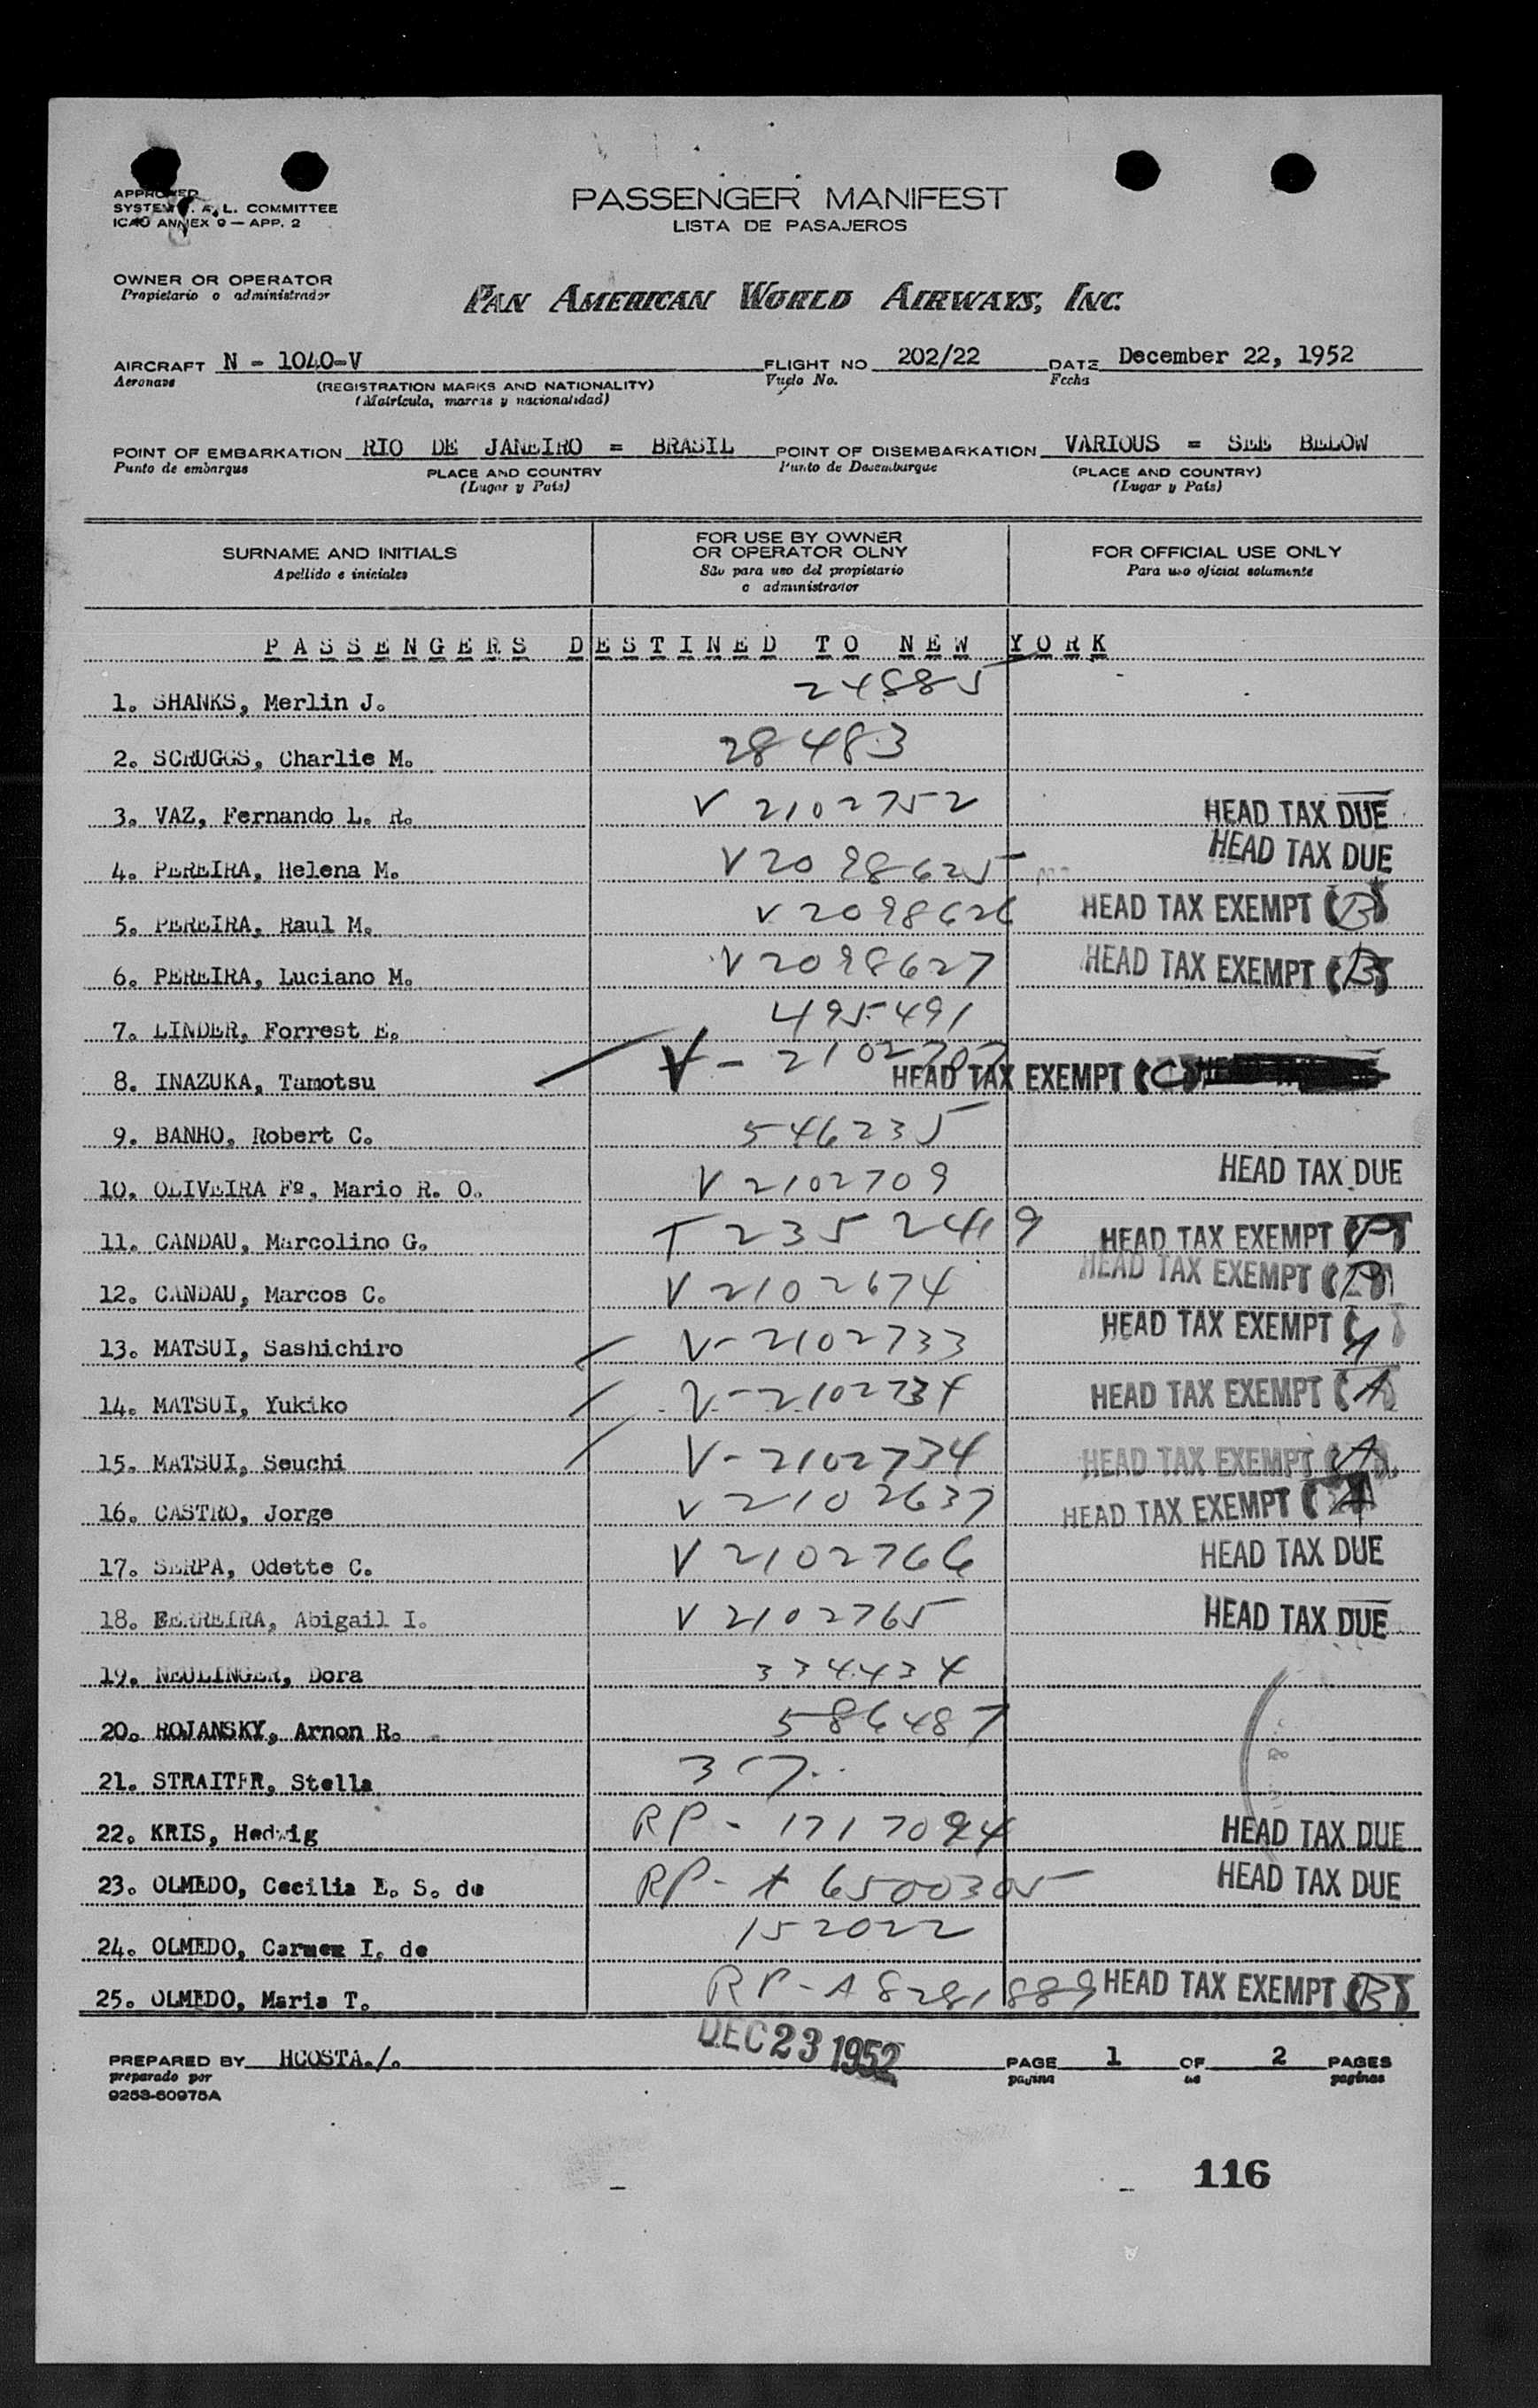 APPROVED
SYSTEM F. A. L. COMMITTEE
ICAO ANNEX 9 — APP. 2
PASSENGER MANIFEST
LISTA DE PASAJEROS
OWNER OR OPERATOR
Propietario o administrador
PAN AMERICAN WORLD AIRWAYS, INC.
AIRCRAFT N - 1040-V FLIGHT NO 202/22 DATE December 22, 1952
Aeronave (REGISTRATION MARKS AND NATIONALITY) Vuelo No. Fecha
(Matrícula, marcas y nacionalidad)
POINT OF EMBARKATION RIO DE JANEIRO = BRASIL POINT OF DISEMBARKATION VARIOUS = SEE BELOW
Punto de embarque PLACE AND COUNTRY Punto de Desembarque (PLACE AND COUNTRY)
(Lugar y País) (Lugar y País)
SURNAME AND INITIALS FOR USE BY OWNER OR OPERATOR OLNY FOR OFFICIAL USE ONLY
Apellido e iniciales São para uso del propietario o administrador Para uso oficial solamente
PASSENGERS DESTINED TO NEW YORK
1. SHANKS, Merlin J. 24885
2. SCRUGGS, Charlie M. 28483
3. VAZ, Fernando L. R. V 2102752 HEAD TAX DUE
4. PEREIRA, Helena M. V 2098625 HEAD TAX DUE
5. PEREIRA, Raul M. V 2098626 HEAD TAX EXEMPT (B)
6. PEREIRA, Luciano M. V 2098627 HEAD TAX EXEMPT (B)
7. LINDER, Forrest E. 495491
8. INAZUKA, Tamotsu V - 2102707 HEAD TAX EXEMPT (C)
9. BANHO, Robert C. 546235
10. OLIVEIRA Fº, Mario R. O. V 2102709 HEAD TAX DUE
11. CANDAU, Marcolino G. T 2352419 HEAD TAX EXEMPT
12. CANDAU, Marcos C. V 2102674 HEAD TAX EXEMPT
13. MATSUI, Sashichiro V-2102733 HEAD TAX EXEMPT (A)
14. MATSUI, Yukiko V-2102734 HEAD TAX EXEMPT (A)
15. MATSUI, Seuchi V-2102734 HEAD TAX EXEMPT (A)
16. CASTRO, Jorge V 2102637 HEAD TAX EXEMPT (A)
17. SERPA, Odette C. V 2102766 HEAD TAX DUE
18. FERREIRA, Abigail I. V 2102765 HEAD TAX DUE
19. NEULINGER, Dora 334434
20. ROJANSKY, Arnon R. 586487
21. STRAITER, Stella 317
22. KRIS, Hedwig RP - 1717094 HEAD TAX DUE
23. OLMEDO, Cecilia E. S. de RP - A 6500305 HEAD TAX DUE
24. OLMEDO, Carmen I. de 152022
25. OLMEDO, Maria T. RP-A 8281889 HEAD TAX EXEMPT (B)
DEC 23 1952
PREPARED BY HCOSTA./. PAGE 1 OF 2 PAGES
preparado por pagina de paginas
9253-60975A
116